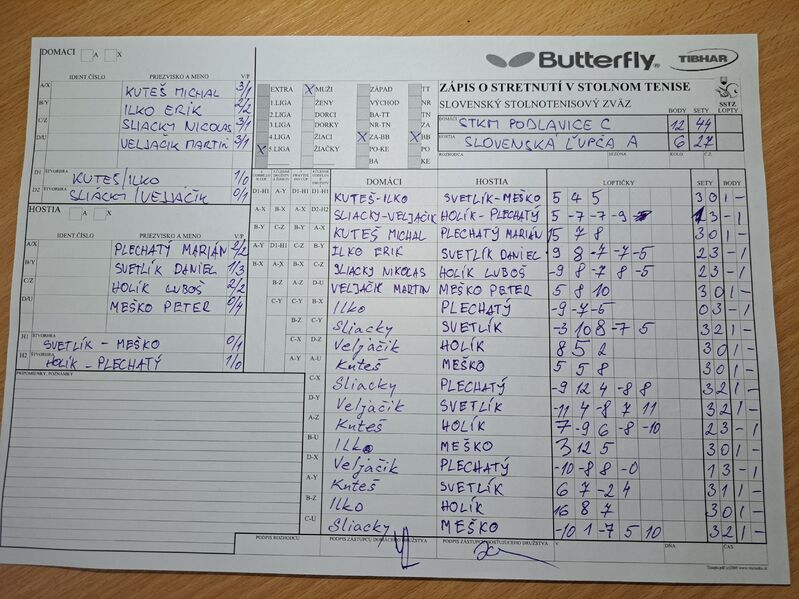 DOMÁCI A X
IDENT.ČÍSLO PRIEZVISKO A MENO V/P
A/X KUTEŠ MICHAL 3/1
B/Y ILKO ERIK 2/2
C/Z SLIACKY NICOLAS 3/1
D/U VELJAČIK MARTIN
D1 ŠTVORHRA KUTEŠ/ILKO 1/0
D2 ŠTVORHRA SLIACKY/VELJAČIK 0/1
HOSTIA A X
IDENT.ČÍSLO PRIEZVISKO A MENO V/P
A/X PLECHATÝ MARIÁN 2/2
B/Y SVETLÍK DANIEL 1/3
C/Z HOLÍK ĽUBOŠ 2/2
D/U MEŠKO PETER 0/4
H1 ŠTVORHRA SVETLÍK - MEŠKO 0/1
H2 ŠTVORHRA HOLÍK - PLECHATÝ 1/0
PRIPOMIENKY, POZNÁMKY
Butterfly TIBHAR
EXTRA X MUŽI ZÁPAD TT
1.LIGA ŽENY VÝCHOD NR
2.LIGA DORCI BA-TT TN
3.LIGA DORKY NR-TN ZA
4.LIGA ŽIACI X ZA-BB X BB
X 5.LIGA ŽIAČKY PO-KE PO
BA KE
ZÁPIS O STRETNUTÍ V STOLNOM TENISE
SLOVENSKÝ STOLNOTENISOVÝ ZVÄZ
SSTZ
BODY SETY LOPTY
DOMÁCI STKM PODLAVICE C 12 44
HOSTIA SLOVENSKÁ ĽUPČA A 6 27
ROZHODCA SEZÓNA KOLO Č.Z.
DOMÁCI HOSTIA LOPTIČKY SETY BODY
D1-H1 A-Y D1-H1 D1-H1 KUTEŠ-ILKO SVETLÍK-MEŠKO 5 4 5 3 0 1 -
A-X B-X A-X D2-H2 SLIACKY-VELJAČIK HOLÍK-PLECHATÝ 5 -7 -7 -9 1 3 - 1
B-Y C-Z B-Y A-X KUTEŠ MICHAL PLECHATÝ MARIÁN 15 7 8 3 0 1 -
A-Y D1-H1 C-Z B-Y ILKO ERIK SVETLÍK DANIEL -9 8 -7 -7 -5 2 3 - 1
B-X A-X C-Z SLIACKY NIKOLAS HOLÍK ĽUBOŠ -9 8 -7 8 -5 2 3 - 1
B-Z A-Z D-U VELJAČIK MARTIN MEŠKO PETER 5 8 10 3 0 1 -
C-Y C-Y B-X Ilko PLECHATÝ -9 -7 -5 0 3 - 1
B-Z C-Y Sliacky SVETLÍK -3 10 8 -7 5 3 2 1 -
C-X D-Z Veljačik HOLÍK 8 5 2 3 0 1 -
A-Y A-U Kuteš MEŠKO 5 5 8 3 0 1 -
C-X Sliacky PLECHATÝ -9 12 4 -8 8 3 2 1 -
D-Y Veljačik SVETLÍK -11 4 -8 7 11 3 2 1 -
A-Z Kuteš HOLÍK 7 -9 6 -8 -10 2 3 - 1
B-U Ilko MEŠKO 3 12 5 3 0 1 -
D-X Veljačik PLECHATÝ -10 -8 8 -0 1 3 - 1
A-Y Kuteš SVETLÍK 6 7 -2 4 3 1 1 -
B-Z Ilko HOLÍK 16 8 7 3 0 1 -
C-U Sliacky MEŠKO -10 1 -7 5 10 3 2 1 -
PODPIS ROZHODCU PODPIS ZÁSTUPCU DOMÁCEHO DRUŽSTVA PODPIS ZÁSTUPCU HOSŤUJÚCEHO DRUŽSTVA V DŇA ČAS